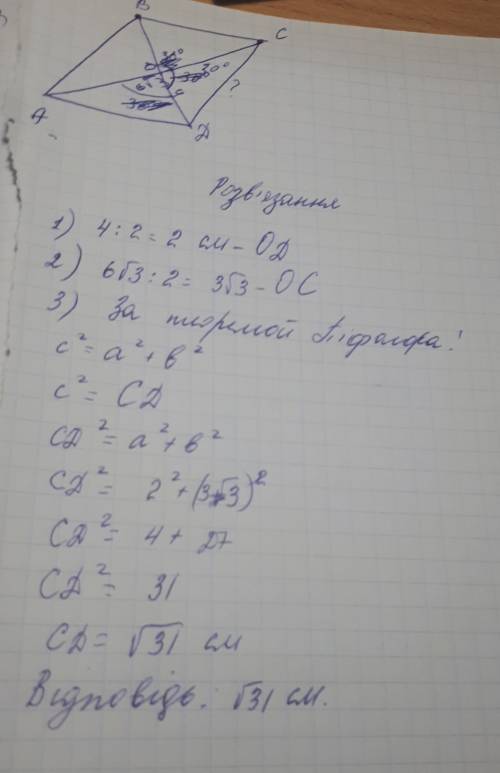 B
C
30°
?
4
A
D
Розв'язання
1) 4:2=2 см - OD
2) 6√3:2= 3√3 - OC
3) За теоремой Піфагора:
c²=a²+b²
c²= CD
CD²=a²+b²
CD²= 2²+(3√3)²
CD²= 4+ 27
CD²= 31
CD= √31 см
Відповідь: √31 см.